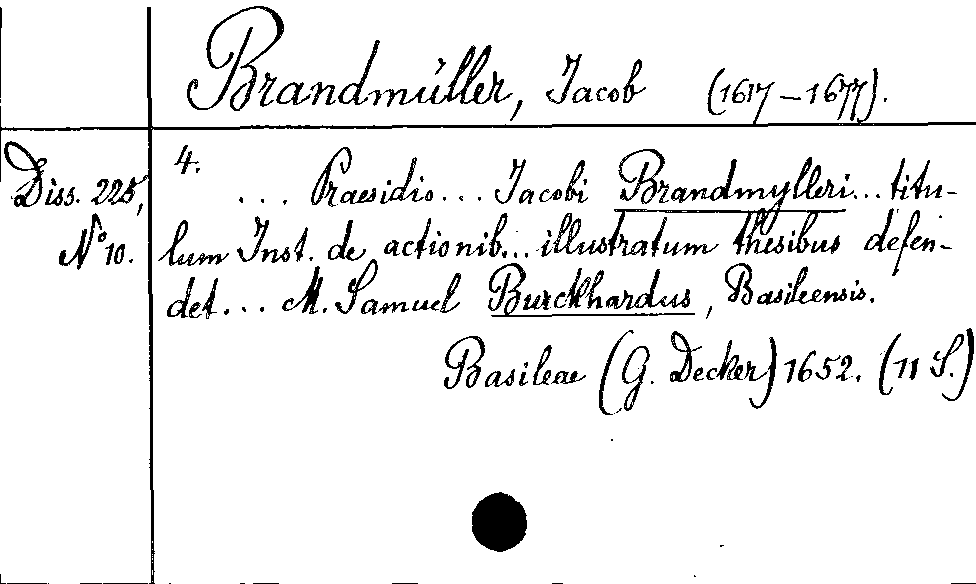 Brandmüller, Jacob (1617–1677).
Diss. 225,
No 10.
4.
... Praesidio... Jacobi Brandmylleri... titu-
lum Inst. de actionib... illustratum thesibus defen-
det... M. Samuel Burckhardus, Basileensis.
Basileae (G. Decker) 1652. (11 S.)